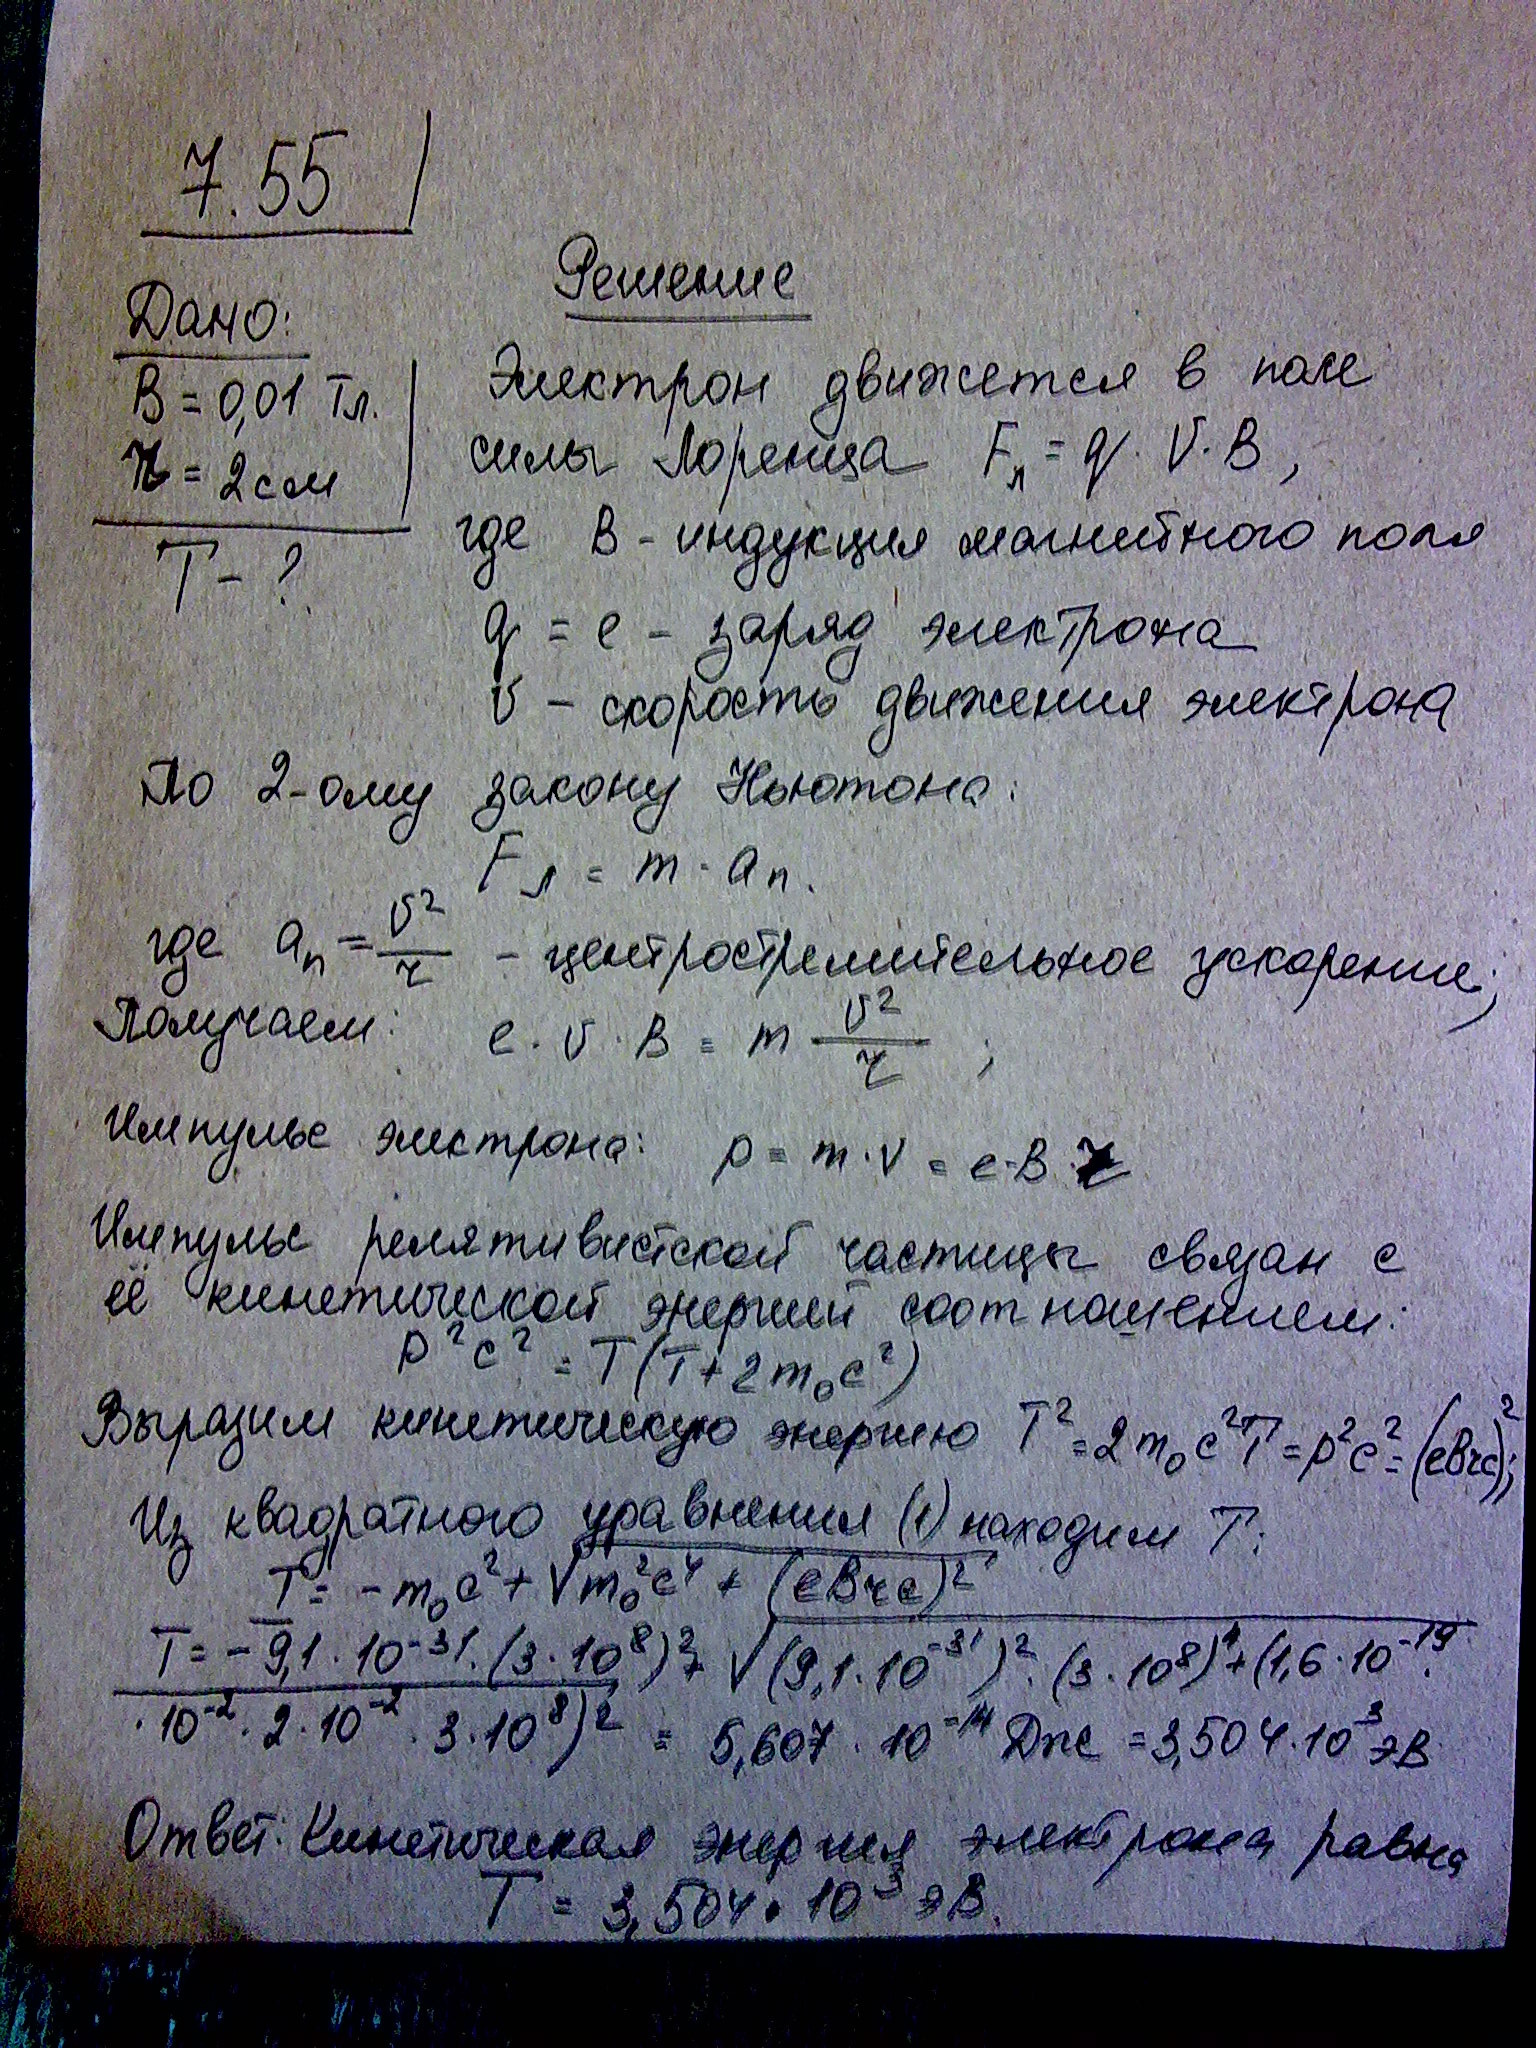 7.55
Решение
Дано:
B = 0,01 Тл.
r = 2 см
T - ?
Электрон движется в поле
силы Лоренца Fл = q · V · B,
где B - индукция магнитного поля
q = e - заряд электрона
V - скорость движения электрона
По 2-ому закону Ньютона:
Fл = m · aₙ.
где aₙ = V²/r - центростремительное ускорение;
Получаем: e · V · B = m V²/r ;
Импульс электрона: p = m · V = e · B · r
Импульс релятивистской частицы связан с
её кинетической энергией соотношением:
p²c² = T(T + 2m₀c²)
Выразим кинетическую энергию T² = 2m₀c²T = p²c² = (eBrc)²;
Из квадратного уравнения (1) находим T:
T = - m₀c² + √m₀²c⁴ + (eBrc)²
T = - 9,1 · 10⁻³¹ · (3 · 10⁸)² + √(9,1 · 10⁻³¹)² · (3 · 10⁸)⁴ + (1,6 · 10⁻¹⁹ ·
· 10⁻² · 2 · 10⁻² · 3 · 10⁸)² = 5,607 · 10⁻¹⁴ Дж = 3,504 · 10³ эВ
Ответ: Кинетическая энергия электрона равна
T = 3,504 · 10³ эВ.